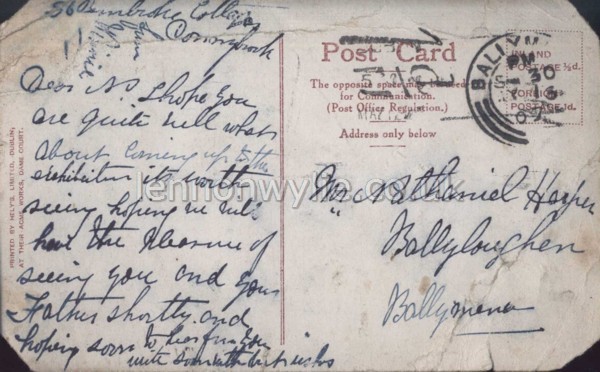 56 Pembroke Cottages
Donnybrook
Dear N. I hope you
are quite well what
about coming up to the
exhibition its worth
seeing hoping we will
have the pleasure of
seeing you and your
Father shortly and
hoping soon to hear from you
with best wishes
from
Minnie
PRINTED BY HELY'S LIMITED, DUBLIN,
AT THEIR ACME WORKS, DAME COURT.
Post Card
The opposite space may be used
for Communication.
(Post Office Regulation.)
Address only below
INLAND
POSTAGE ½d.
FOREIGN
POSTAGE 1d.
BALLYM
PM
30
07
lennonwylie.co.uk
Mr Nathaniel Harper
Ballyloughen
Ballymena